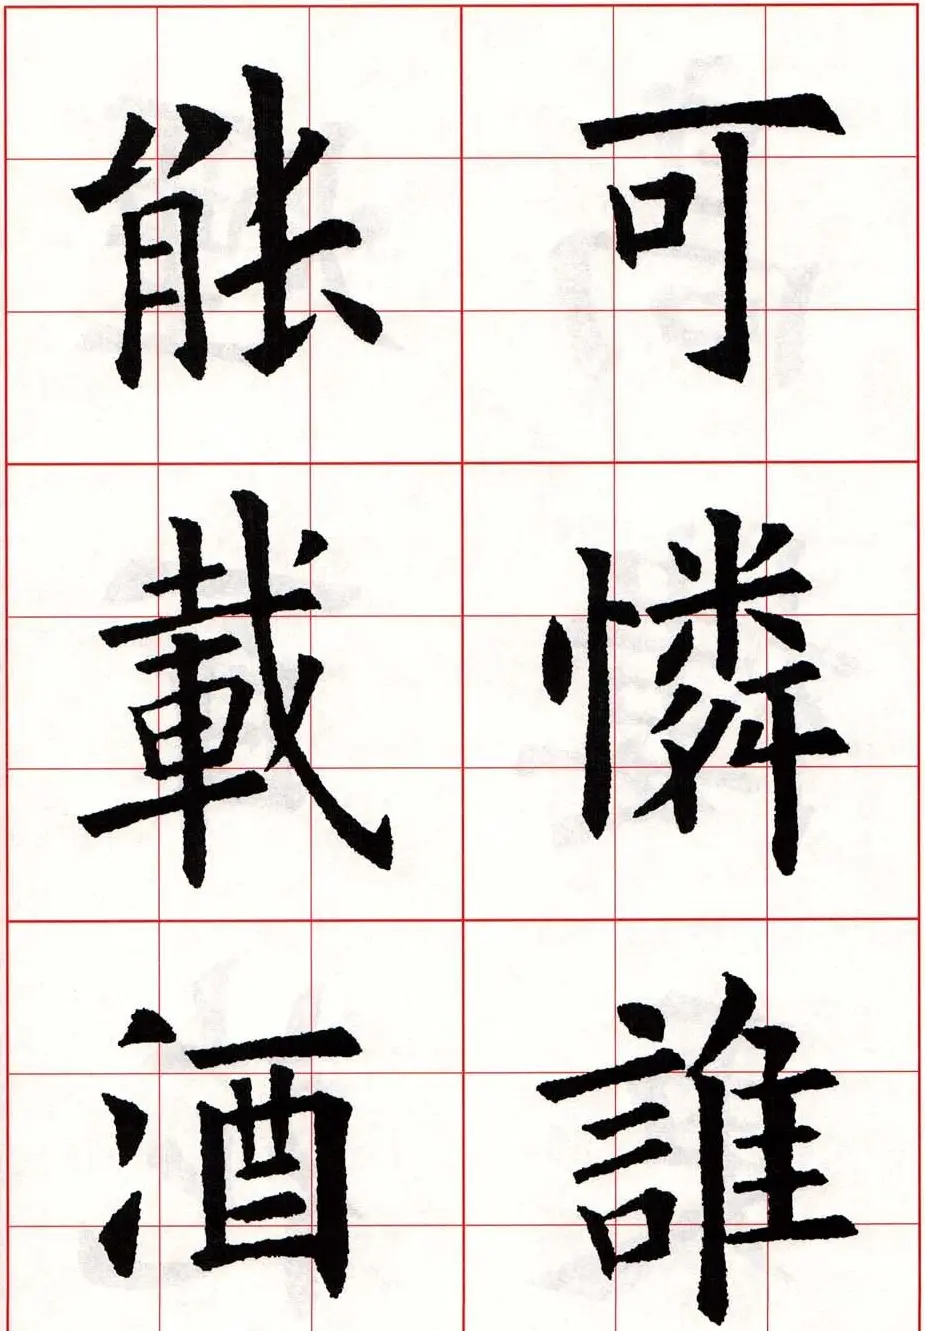 可憐誰
能載酒